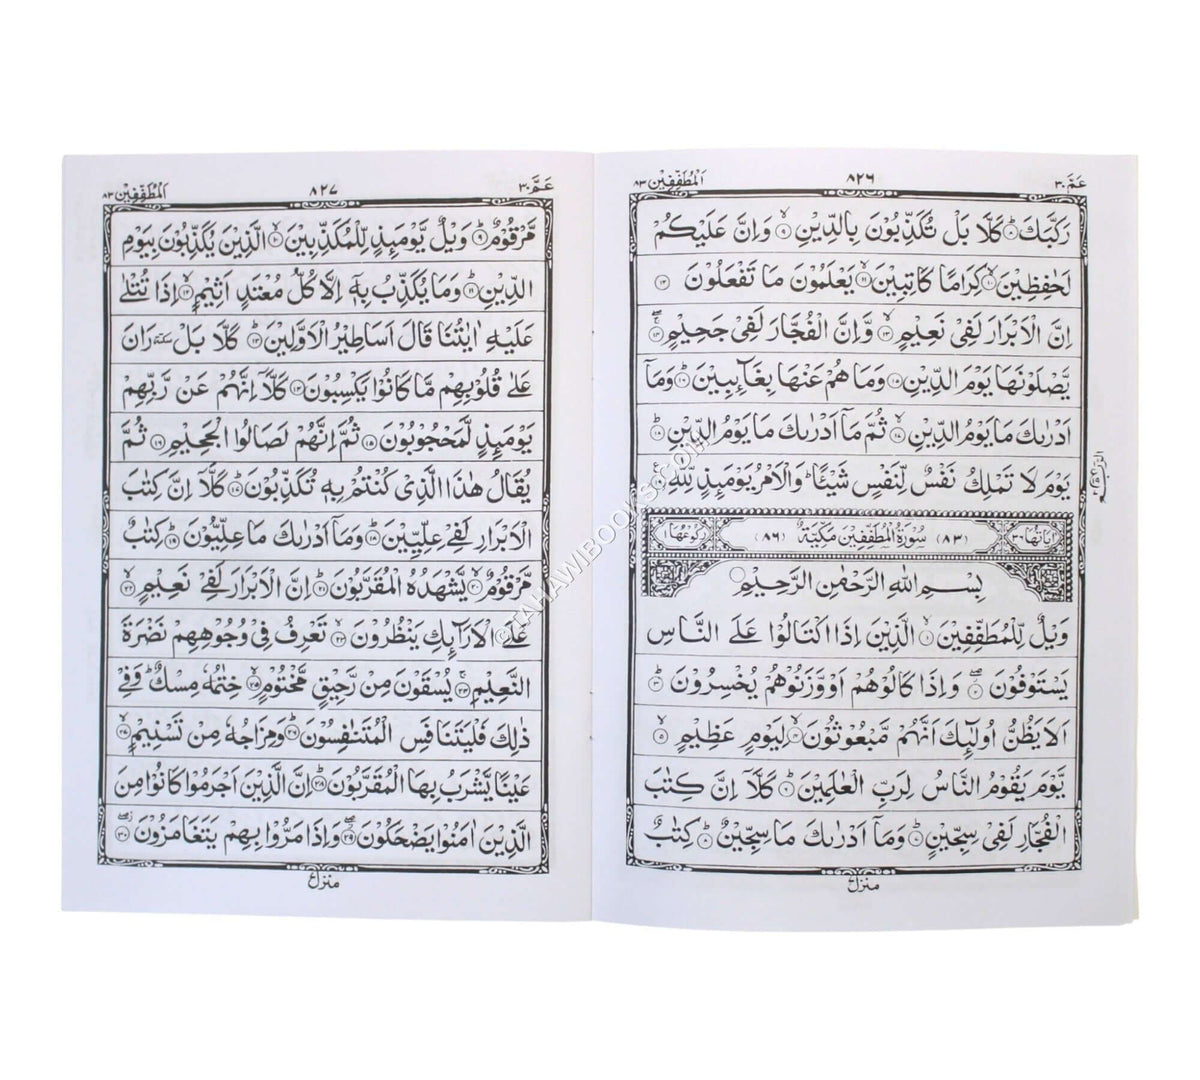 عَمَّ ٣٠
٨٢٦
اَلْمُطَفِّفِيْن ٨٣
رَكَّبَكَ ؕ‏ ﴿۸﴾ كَلَّا بَلْ تُكَذِّبُوْنَ بِالدِّيْنِ ۙ‏ ﴿۹﴾ وَاِنَّ عَلَيْكُمْ
لَحٰفِظِيْنَ ۙ‏ ﴿۱۰﴾ كِرَامًا كَاتِبِيْنَ ۙ‏ ﴿۱۱﴾ يَعْلَمُوْنَ مَا تَفْعَلُوْنَ‏ ﴿۱۲﴾
اِنَّ الْاَبْرَارَ لَفِىْ نَعِيْمٍ ۙ‏ ﴿۱۳﴾ وَّاِنَّ الْفُجَّارَ لَفِىْ جَحِيْمٍ ۚ ۖ‏ ﴿۱۴﴾
يَّصْلَوْنَهَا يَوْمَ الدِّيْنِ‏ ﴿۱۵﴾ وَمَا هُمْ عَنْهَا بِغَآٮِٕبِيْنَ ؕ‏ ﴿۱۶﴾ وَمَاۤ
اَدْرٰٮكَ مَا يَوْمُ الدِّيْنِ ۙ‏ ﴿۱۷﴾ ثُمَّ مَاۤ اَدْرٰٮكَ مَا يَوْمُ الدِّيْنِ ؕ‏ ﴿۱۸﴾
يَوْمَ لَا تَمْلِكُ نَفْسٌ لِّنَفْسٍ شَيْــًٔا ؕ وَالْاَمْرُ يَوْمَٮِٕذٍ لِّلّٰهِ ﴿۱۹﴾ ع
اٰيَاتُهَا ٣٦ (٨٣) سُوْرَةُ الْمُطَفِّفِيْنَ مَكِّيَّةٌ (٨٦) رُكُوْعُهَا ١
بِسْمِ اللّٰهِ الرَّحْمٰنِ الرَّحِيْمِ
وَيْلٌ لِّلْمُطَفِّفِيْنَ ۙ‏ ﴿۱﴾ الَّذِيْنَ اِذَا اكْتَالُوْا عَلَى النَّاسِ
يَسْتَوْفُوْنَ ۖ‏ ﴿۲﴾ وَاِذَا كَالُوْهُمْ اَوْ وَّزَنُوْهُمْ يُخْسِرُوْنَ ؕ‏ ﴿۳﴾
اَلَا يَظُنُّ اُولٰٓٮِٕكَ اَنَّهُمْ مَّبْعُوْثُوْنَ ۙ‏ ﴿۴﴾ لِيَوْمٍ عَظِيْمٍ ۙ‏ ﴿۵﴾
يَّوْمَ يَقُوْمُ النَّاسُ لِرَبِّ الْعٰلَمِيْنَ ؕ‏ ﴿۶﴾ كَلَّاۤ اِنَّ كِتٰبَ
الْفُجَّارِ لَفِىْ سِجِّيْنٍ ؕ‏ ﴿۷﴾ وَمَاۤ اَدْرٰٮكَ مَا سِجِّيْنٌ ؕ‏ ﴿۸﴾ كِتٰبٌ
منزل
عَمَّ ٣٠
٨٢٧
اَلْمُطَفِّفِيْن ٨٣
مَّرْقُوْمٌ ؕ‏ ﴿۹﴾ وَيْلٌ يَّوْمَٮِٕذٍ لِّلْمُكَذِّبِيْنَ ۙ‏ ﴿۱۰﴾ الَّذِيْنَ يُكَذِّبُوْنَ بِيَوْمِ
الدِّيْنِ ؕ‏ ﴿۱۱﴾ وَمَا يُكَذِّبُ بِهٖۤ اِلَّا كُلُّ مُعْتَدٍ اَثِيْمٍ ۙ‏ ﴿۱۲﴾ اِذَا تُتْلٰى
عَلَيْهِ اٰيٰتُنَا قَالَ اَسَاطِيْرُ الْاَوَّلِيْنَ ؕ‏ ﴿۱۳﴾ كَلَّا بَلْ سكتة رَانَ
عَلٰى قُلُوْبِهِمْ مَّا كَانُوْا يَكْسِبُوْنَ‏ ﴿۱۴﴾ كَلَّاۤ اِنَّهُمْ عَنْ رَّبِّهِمْ
يَوْمَٮِٕذٍ لَّمَحْجُوْبُوْنَ ؕ‏ ﴿۱۵﴾ ثُمَّ اِنَّهُمْ لَصَالُوا الْجَحِيْمِ ؕ‏ ﴿۱۶﴾ ثُمَّ
يُقَالُ هٰذَا الَّذِىْ كُنْتُمْ بِهٖ تُكَذِّبُوْنَ ؕ‏ ﴿۱۷﴾ كَلَّاۤ اِنَّ كِتٰبَ
الْاَبْرَارِ لَفِىْ عِلِّيِّيْنَ ؕ‏ ﴿۱۸﴾ وَمَاۤ اَدْرٰٮكَ مَا عِلِّيُّوْنَ ؕ‏ ﴿۱۹﴾ كِتٰبٌ
مَّرْقُوْمٌ ۙ‏ ﴿۲۰﴾ يَّشْهَدُهُ الْمُقَرَّبُوْنَ ؕ‏ ﴿۲۱﴾ اِنَّ الْاَبْرَارَ لَفِىْ نَعِيْمٍ ۙ‏ ﴿۲۲﴾
عَلَى الْاَرَآٮِٕكِ يَنْظُرُوْنَ ۙ‏ ﴿۲۳﴾ تَعْرِفُ فِىْ وُجُوْهِهِمْ نَضْرَةَ
النَّعِيْمِ ۚ‏ ﴿۲۴﴾ يُسْقَوْنَ مِنْ رَّحِيْقٍ مَّخْتُوْمٍ ۙ‏ ﴿۲۵﴾ خِتٰمُهٗ مِسْكٌ ؕ وَفِىْ
ذٰلِكَ فَلْيَتَنَافَسِ الْمُتَنٰفِسُوْنَ ؕ‏ ﴿۲۶﴾ وَمِزَاجُهٗ مِنْ تَسْنِيْمٍ ۙ‏ ﴿۲۷﴾
عَيْنًا يَّشْرَبُ بِهَا الْمُقَرَّبُوْنَ ؕ‏ ﴿۲۸﴾ اِنَّ الَّذِيْنَ اَجْرَمُوْا كَانُوْا مِنَ
الَّذِيْنَ اٰمَنُوْا يَضْحَكُوْنَ ۖ‏ ﴿۲۹﴾ وَاِذَا مَرُّوْا بِهِمْ يَتَغَامَزُوْنَ ۖ‏ ﴿۳۰﴾
منزل
©TAHAWIBOOKS.COM